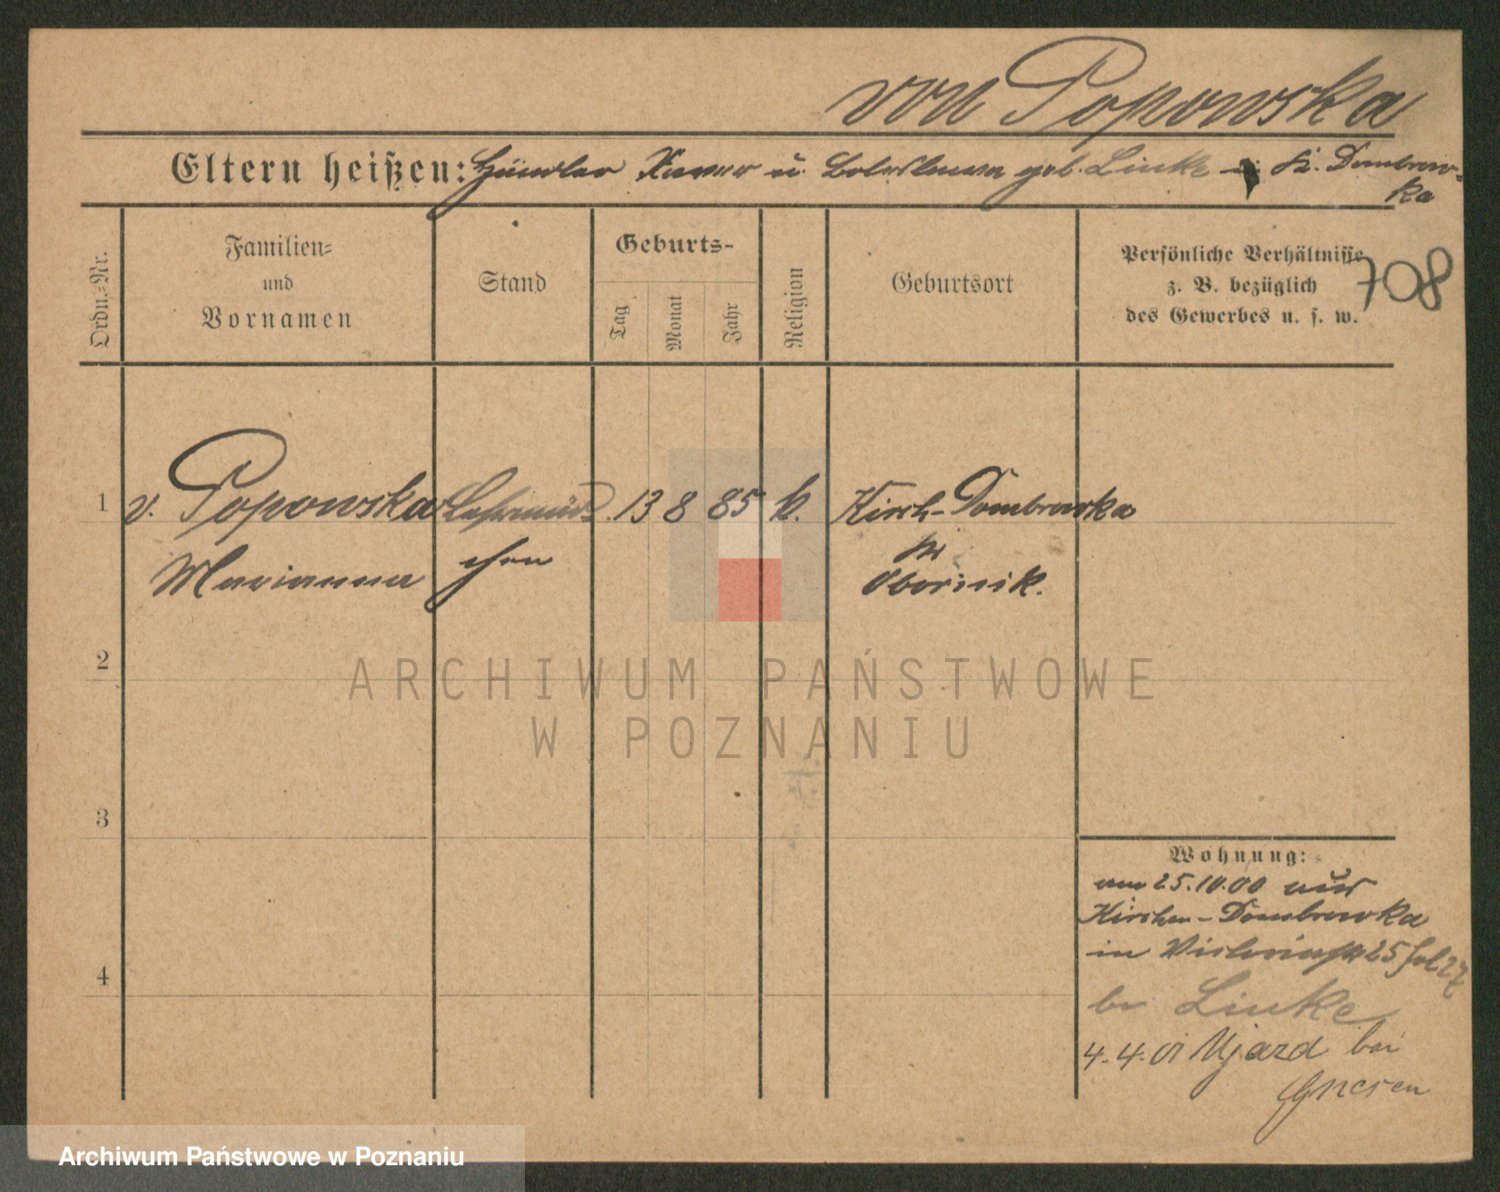 von Popowska
Eltern heißen: Händler Xaver u. Boleslawa geb. Linke in K. Dombrow-
ka
Ordn.-Nr.
Familien-
und
Vornamen
Stand
Geburts-
Tag
Monat
Jahr
Religion
Geburtsort
Persönliche Verhältnisse
z. B. bezüglich
des Gewerbes u. s. w.
708
1 v. Popowska Lehrmäd- 13 8 85 k. Kirch-Dombrowka
Marianna chen Kr
Obornik.
2
3
4
Wohnung:
am 25.10.00 aus
Kirchen-Dombrowka
in 25
bei Linke
4.4.01 Ujazd bei
Gnesen
ARCHIWUM PAŃSTWOWE
W POZNANIU
Archiwum Państwowe w Poznaniu